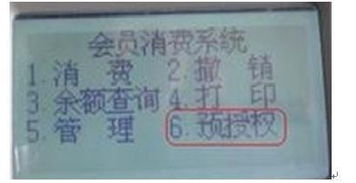 会员消费系统
1.消 费 2.撤 销
3.余额查询 4.打 印
5.管 理 6.预授权